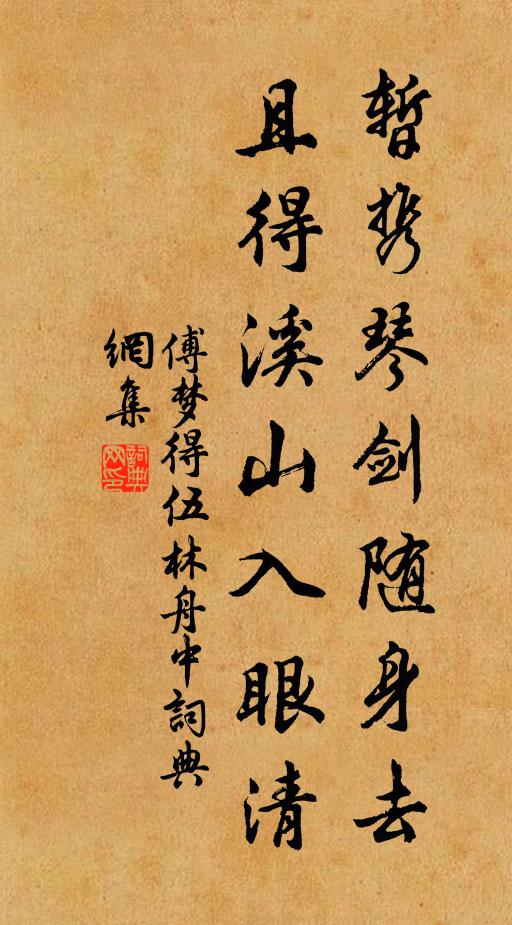 暫携琴剑随身去
且得溪山入眼清
傅梦得伍林舟中詞典
網集
詞典
网印